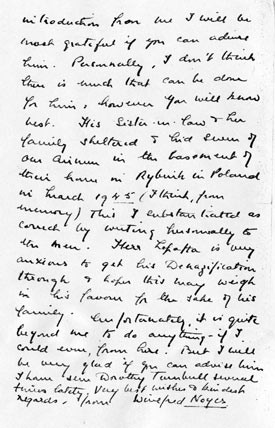 introduction from me I will be
most grateful if you can advise
him. Personally, I don't think
there is much that can be done
for him, however you will know
best. His Sister-in-law & her
family sheltered & hid seven of
our Airmen in the basement of
their home in Rybnik in Poland
in March 1945 (I think, from
memory) This I substantiated as
correct by writing personally to
the men. Herr is very
anxious to get his Denazification
through & hopes this may weigh
in his favour for the sake of his
family. Unfortunately, it is quite
beyond me to do anything - if I
could even, from here. But I will
be very glad if you can advise him
I have seen Dorothy Turnbull several
times lately, Very best wishes & kindest
regards, from Winifred Noyce